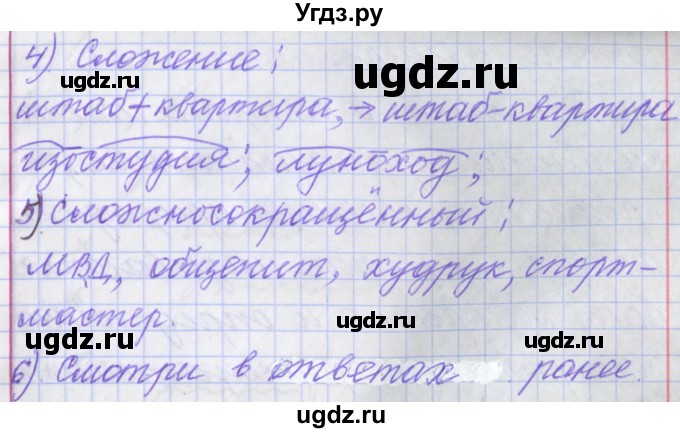 Угдз.ру
4) Сложение;
ugdz.ru ugdz.ru
штаб+квартира, → штаб-квартира
изостудия; луноход;
ugdz.ru ugdz.ru
5) Сложносокращённый;
МВД, общепит, худрук, спорт-
мастер.
ugdz.ru ugdz.ru
6) Смотри в ответах ранее.
ugdz.ru